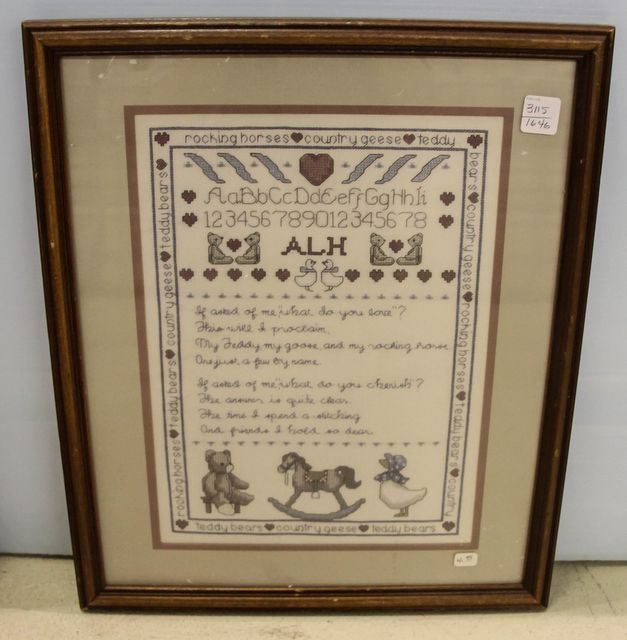 3115
1646
rocking horses country geese teddy
bears country geese rocking horses teddy bears country
teddy bears country geese teddy bears
rocking horses teddy bears country geese teddy bears
AaBbCcDdEeFfGgHhIi
123456789012345678
ALH
If asked of me "what do you love"?
This will I proclaim,
My Teddy my goose and my rocking horse
Are just a few by name.
If asked of me "what do you cherish"?
The answer is quite clear.
The time I spend a stitching
And friends I hold so dear.